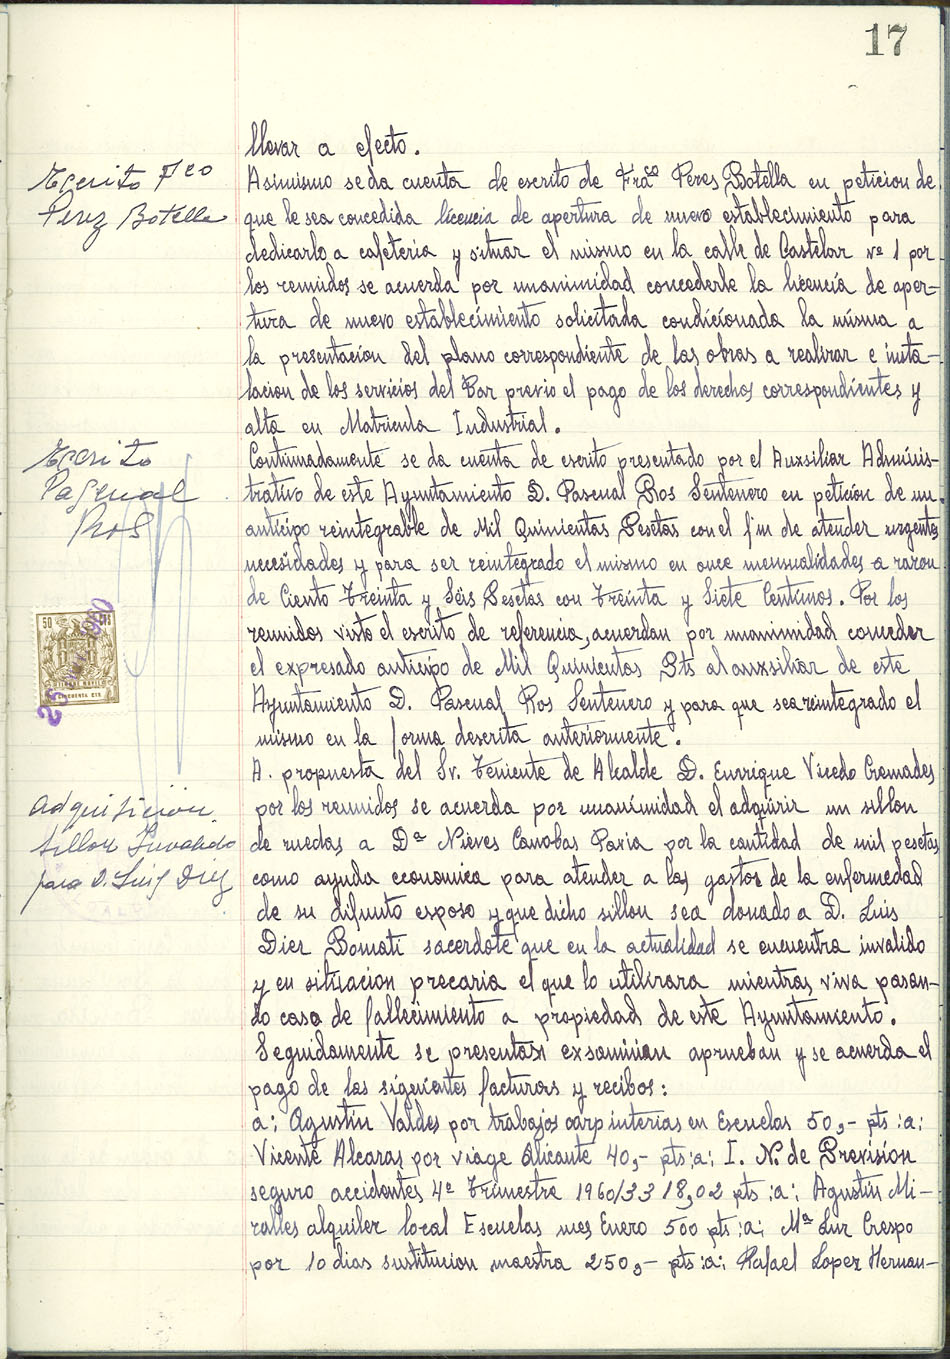 17
llevar a efecto.
Escrito Fco
Perez Botella
Asimismo se da cuenta de escrito de Fraco Peres Botella en peticion de
que le sea concedida licencia de apertura de nuevo establecimiento para
dedicarlo a cafeteria y situar el mismo en la calle de Castelar nº 1 por
los reunidos se acuerda por unanimidad concederle la licencia de aper-
tura de nuevo establecimiento solicitada condicionada la misma a
la presentacion del plano correspondiente de las obras a realizar e insta-
lacion de los servicios del Bar previo el pago de los derechos correspondientes y
alta en Matricula Industrial.
Escrito
Pascual
Ros
Continuadamente se da cuenta de escrito presentado por el Auxsiliar Adminis-
trativo de este Ayuntamiento D. Pascual Ros Sentenero en petición de un
anticipo reintegrable de Mil Quinientas Pesetas con el fin de atender urgentes
necesidades y para ser reintegrado el mismo en once mensualidades a razon
de Ciento Treinta y Seis Pesetas con Treinta y Siete Centimos. Por los
reunidos visto el escrito de referencia, acuerdan por unanimidad conceder
el expresado anticipo de Mil Quinientas Pts al auxsiliar de este
Ayuntamiento D. Pascual Ros Sentenero y para que sea reintegrado el
mismo en la forma descrita anteriormente.
50 CTS
CINCUENTA CTS
25
1960
Adquisicion
sillon Invalido
para D. Luis Diez
A. propuesta del Sr. Teniente de Alcalde D. Enrrique Vicedo Cremades
por los reunidos se acuerda por unanimidad el adquirir un sillon
de ruedas a Dª Nieves Canobas Pavia por la cantidad de mil pesetas
como ayuda economica para atender a los gastos de la enfermedad
de su difunto esposo y que dicho sillon sea donado a D. Luis
Dier Bomati sacerdote que en la actualidad se encuentra invalido
y en situacion precaria el que lo utilizara mientras viva pasan-
do caso de fallecimiento a propiedad de este Ayuntamiento.
Seguidamente se presentan exsaminan aprueban y se acuerda el
pago de las siguientes facturas y recibos:
a: Agustín Valdes por trabajos carpinterias en Escuelas 50,- pts :a:
Vicente Alcaras por viage Alicante 40,- pts :a: I. N. de Prevision
seguro accidentes 4º Trimestre 1960/33 18,02 pts :a: Agustín Mi-
ralles alquiler local Escuelas mes Enero 500 pts :a: Mª Luz Crespo
por 10 dias sustitucion maestra 250,- pts :a: Rafael Lopez Hernan-